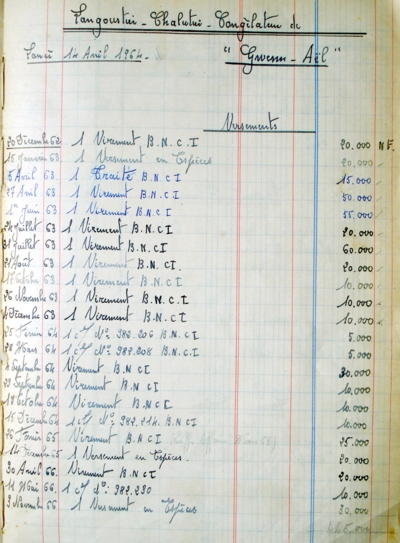 Langoustier - Chalutier - Congélateur de
Lancé 14 Avril 1964. " Gwenn - Aël "
Versements
20 Décembre 62 1 Virement B.N.C.I 20.000 NF.
15 Janvier 63 1 Versement en Espèces 20.000
5 Avril 63 1 Traité B.N.C.I 15.000
27 Avril 63 1 Virement B.N.C.I 50.000
1er Juin 63 1 Virement B.N.C.I 55.000
24 Juillet 63 1 Virement B.N.C.I 20.000
31 Juillet 63 1 Virement B.N.C.I 60.000
21 Août 63 1 Virement B.N.C.I. 20.000
18 Octobre 63 1 Virement B.N.C.I 10.000
26 Novembre 63 1 Virement B.N.C.I 10.000
4 Décembre 63 1 Virement B.N.C.I 10.000
25 Février 64 1 c/ N°: 982.206 B.N.C.I 5.000
28 Mars 64 1 c/ N°: 982.208 B.N.C.I 5.000
4 Septembre 64 Virement B.N.C.I 30.000
29 Septembre 64 Virement B.N.C.I 10.000
18 Octobre 64 Virement B.N.C.I 10.000
15 Décembre 64 1 c/ N°: 982.214 B.N.C.I 10.000
26 Février 65 Virement B.N.C.I 25.000
14 Décembre 65 1 Versement en Espèces. 20.000
30 Avril 66. Virement B.N.C.I 20.000
11 Mai 66. 1 c/ N°: 982.230 10.000
3 Novembre 66 1 Versement en Espèces 30.000